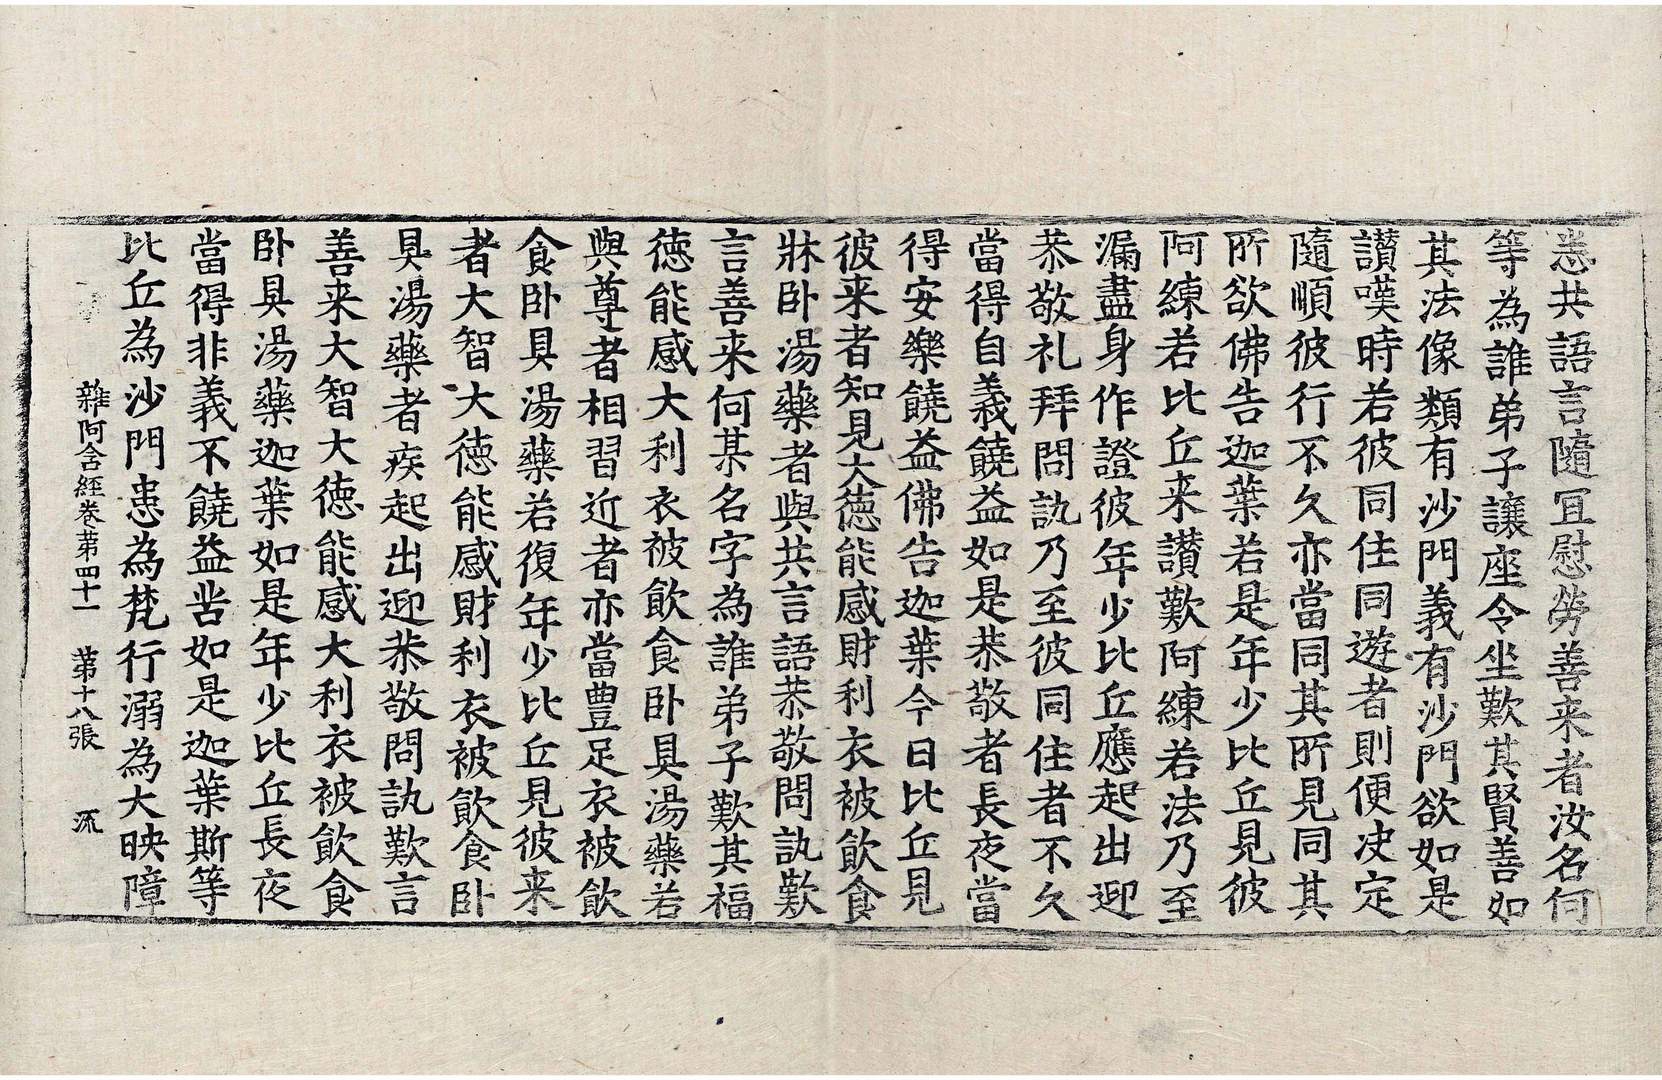 悉共語言隨冝慰勞善来者汝名何
等為誰弟子讓座令坐歎其賢善如
其法像類有沙門義有沙門欲如是
讃嘆時若彼同住同遊者則便决定
隨順彼行不久亦當同其所見同其
所欲佛告迦葉若是年少比丘見彼
阿練若比丘来讃歎阿練若法乃至
漏盡身作證彼年少比丘應起出迎
恭敬礼拜問訊乃至彼同住者不久
當得自義饒益如是恭敬者長夜當
得安樂饒益佛告迦葉今日比丘見
彼来者知見大德能感財利衣被飲食
牀卧湯藥者與共言語恭敬問訊歎
言善来何某名字為誰弟子歎其福
德能感大利衣被飲食卧具湯藥若
與尊者相習近者亦當豊足衣被飲
食卧具湯藥若復年少比丘見彼来
者大智大德能感財利衣被飲食卧
具湯藥者疾起出迎恭敬問訊歎言
善来大智大德能感大利衣被飲食
卧具湯藥迦葉如是年少比丘長夜
當得非義不饒益苦如是迦葉斯等
比丘為沙門患為梵行溺為大映障
雜阿含經卷第四十一　第十八張　流